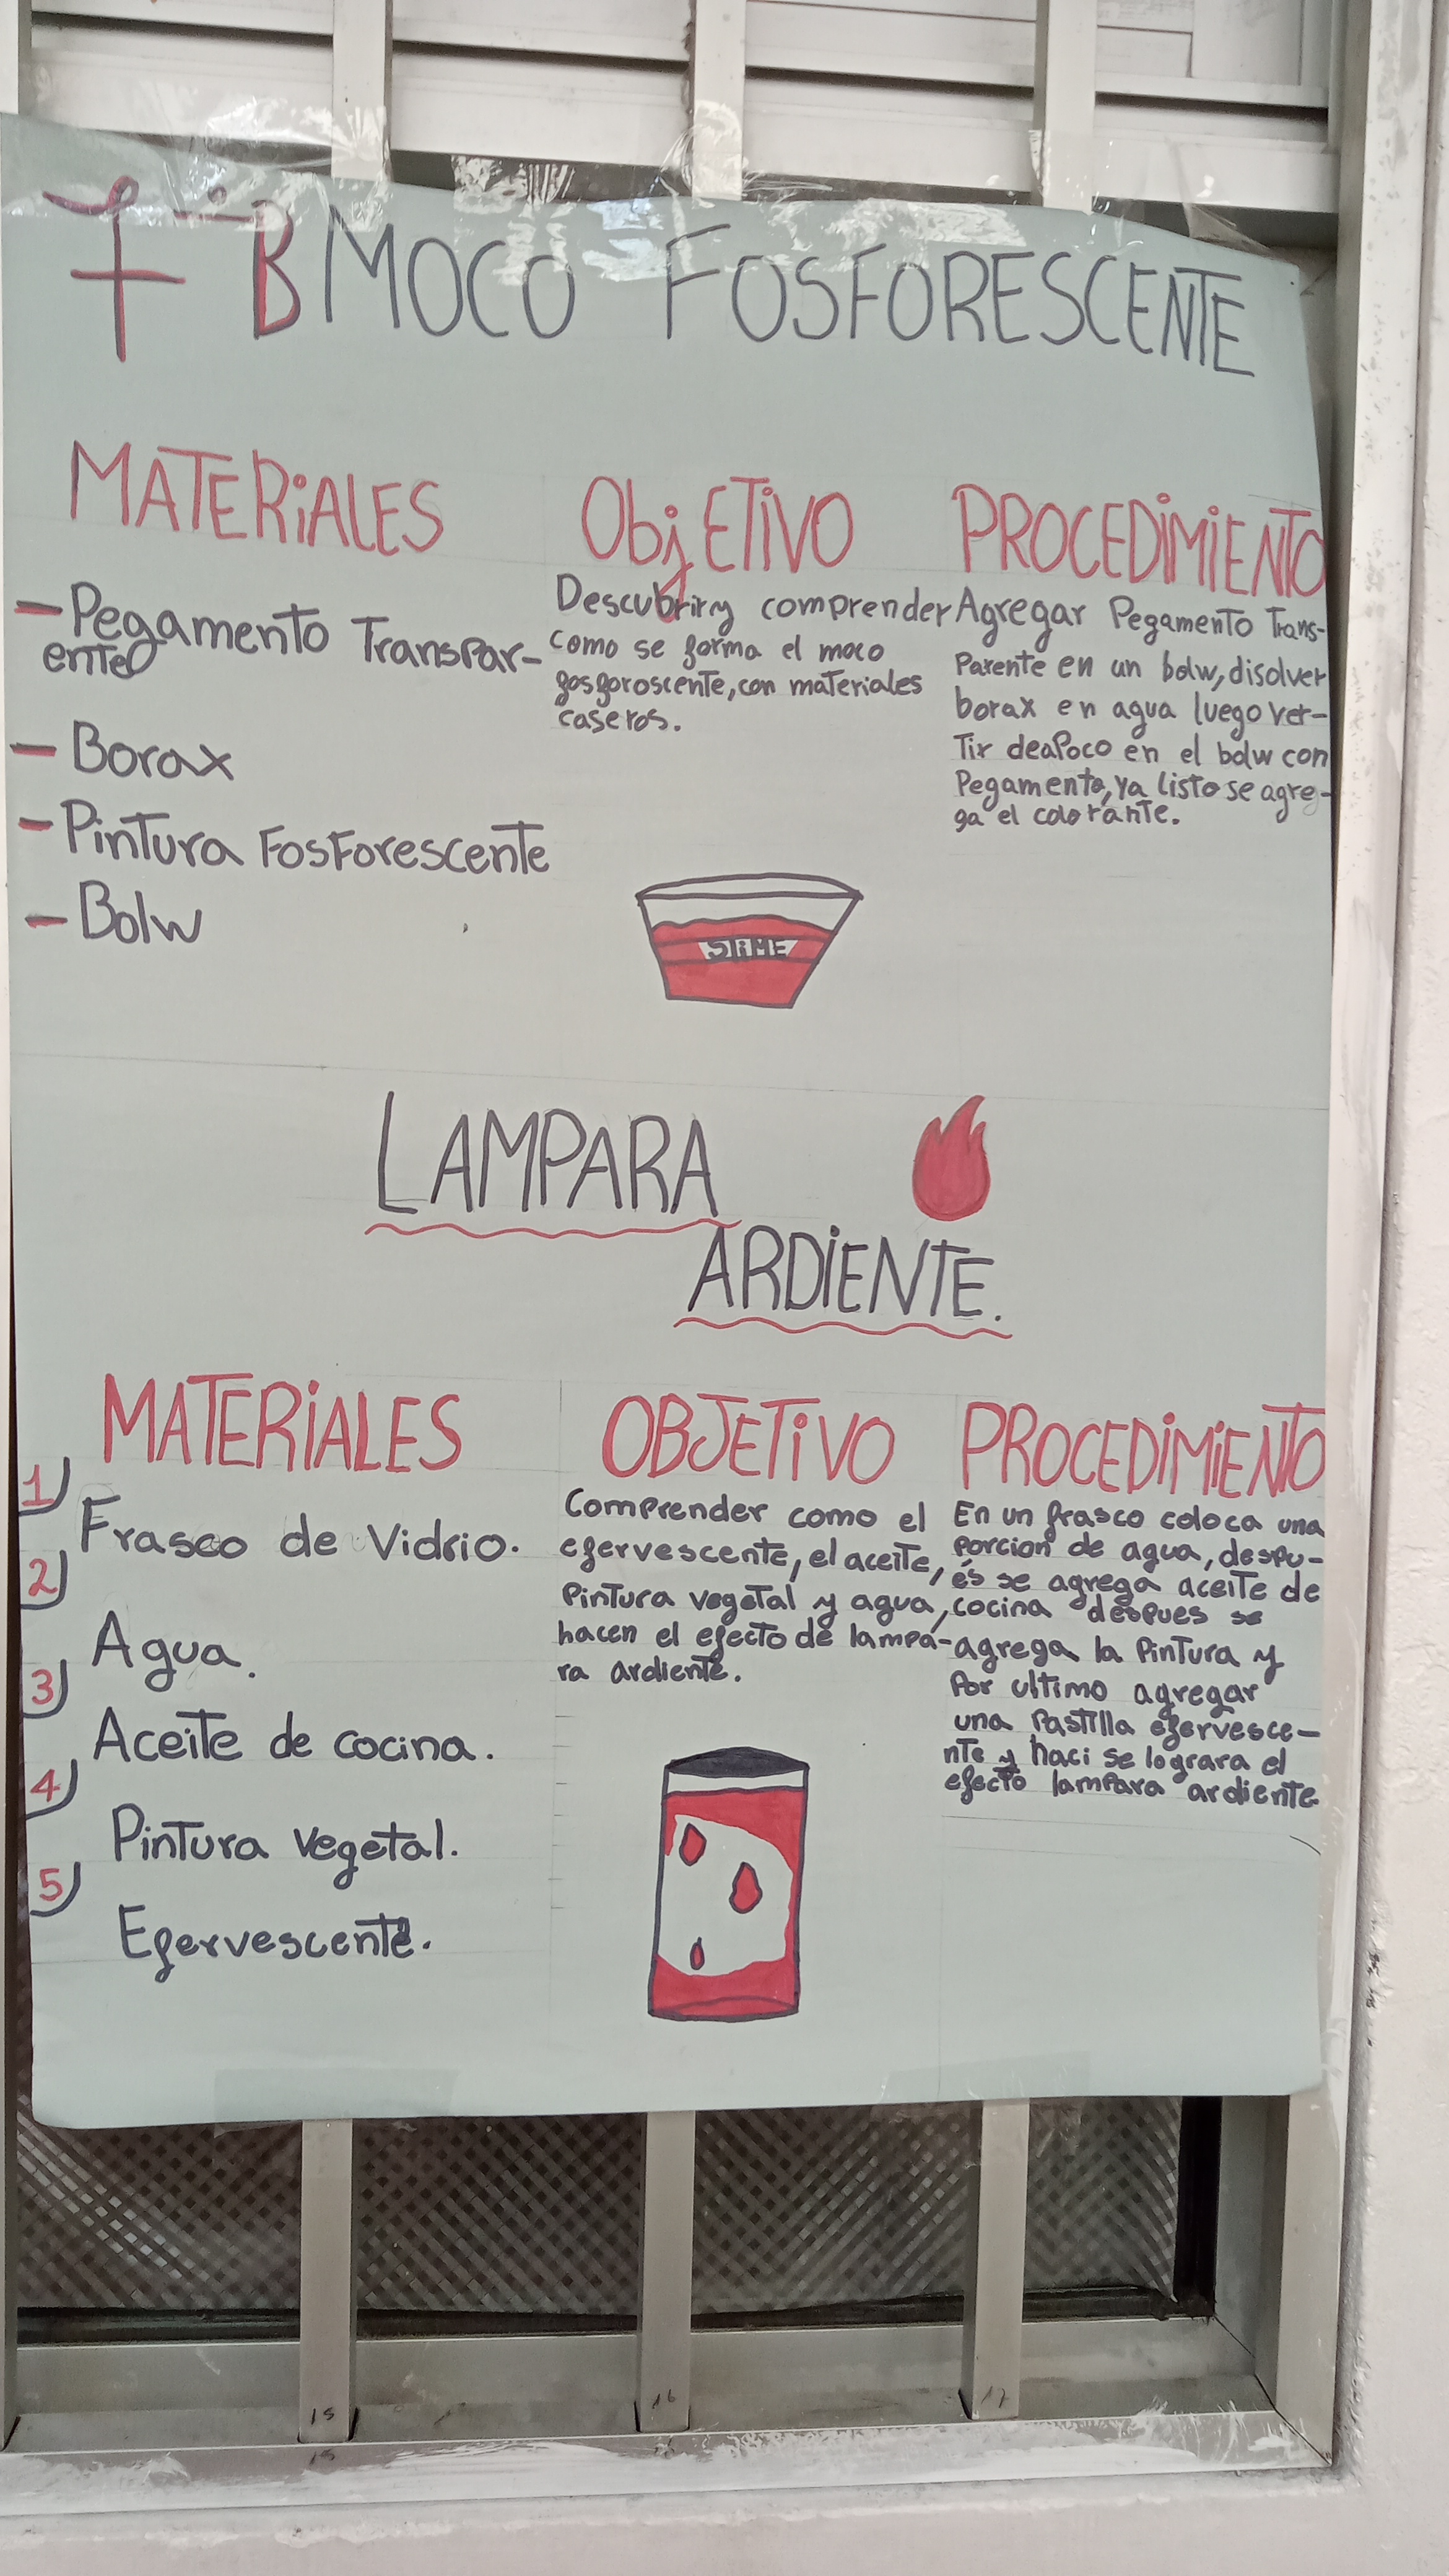 7-B MOCO FOSFORESCENTE
MATERIALES
- Pegamento Transpar-
ente
- Borax
- Pintura Fosforescente
- Bolw
ObjETiVO
Descubrir y comprender
como se forma el moco
fosforoscente, con materiales
caseros.
PROCEDiMiENTO
Agregar Pegamento Trans-
parente en un bolw, disolver
borax en agua luego ver-
Tir deapoco en el bolw con
Pegamento, ya listo se agre-
ga el colorante.
SliME
LAMPARA
ARDiENTE.
MATERiALES
1) Frasco de Vidrio.
2) Agua.
3) Aceite de cocina.
4) Pintura vegetal.
5) Efervescente.
OBJETiVO
Comprender como el
efervescente, el aceite,
Pintura vegetal y agua,
hacen el efecto de lampa-
ra ardiente.
PROCEDiMiENTO
En un frasco coloca una
porcion de agua, despu-
és se agrega aceite de
cocina despues se
agrega la Pintura y
Por ultimo agregar
una Pastilla efervesce-
nte y haci se lograra el
efecto lampara ardiente
15
16
17
15